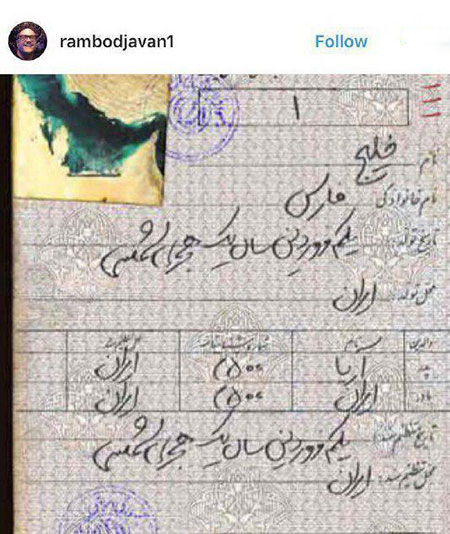 rambodjavan1 Follow
۱
۱۱۱
نام خلیج
نام خانوادگی فارس
تاریخ تولد: یکم فروردین سال یک هجری شمسی
محل تولد: ایران
والدین نام شماره شناسنامه
پدر آریا ۲۵۰۰ ایران
مادر ایران ۲۵۰۰ ایران
تاریخ تنظیم سند: یکم فروردین سال یک هجری شمسی
محل تنظیم سند: ایران